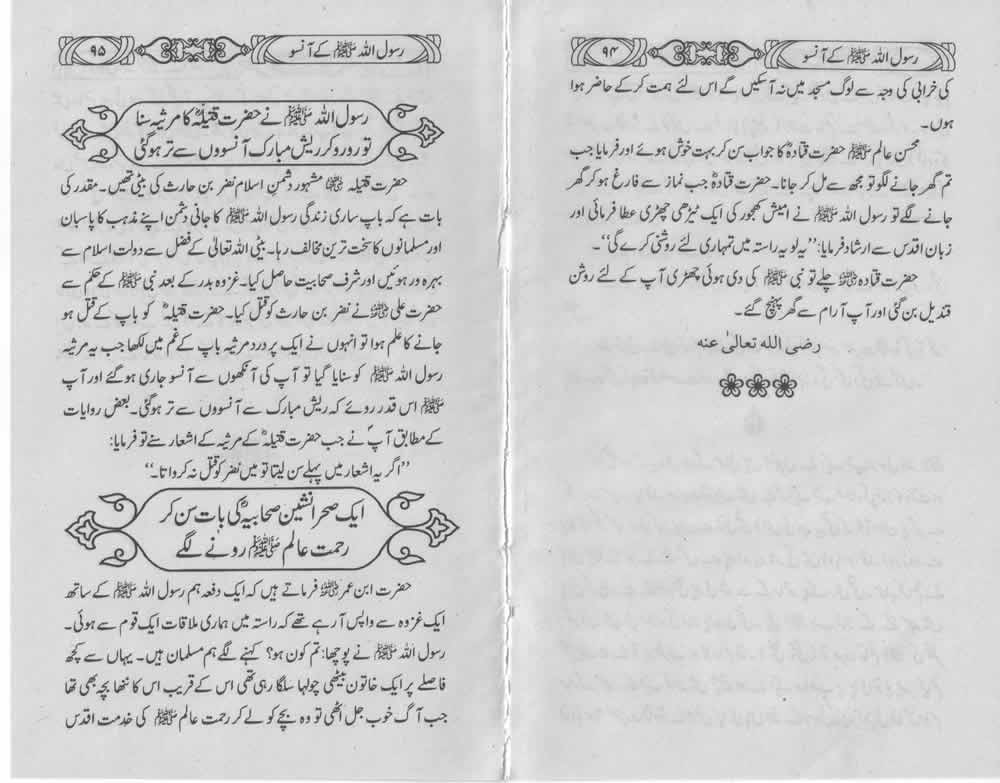 رسول اللہ ﷺ کے آنسو
۹۴
کی خرابی کی وجہ سے لوگ مسجد میں نہ آسکیں گے اس لئے ہمت کر کے حاضر ہوا
ہوں۔
محسن عالم ﷺ حضرت قتادہؓ کا جواب سن کر بہت خوش ہوئے اور فرمایا جب
تم گھر جانے لگو تو مجھ سے مل کر جانا۔ حضرت قتادہؓ جب نماز سے فارغ ہو کر گھر
جانے لگے تو رسول اللہ ﷺ نے انہیں کھجور کی ایک ٹیڑھی چھڑی عطا فرمائی اور
زبان اقدس سے ارشاد فرمایا: ”یہ لو یہ راستہ میں تمہاری لئے روشنی کرے گی“۔
حضرت قتادہ ؓ چلے تو نبی ﷺ کی دی ہوئی چھڑی آپ کے لئے روشن
قندیل بن گئی اور آپ آرام سے گھر پہنچ گئے۔
رضی الله تعالیٰ عنه
رسول اللہ ﷺ کے آنسو
۹۵
رسول اللہ ﷺ نے حضرت قتیلہؓ کا مرثیہ سنا
تو رو رو کر ریش مبارک آنسووں سے تر ہوگئی
حضرت قتیلہ ؓ مشہور دشمنِ اسلام نضر بن حارث کی بیٹی تھیں۔ مقدر کی
بات ہے کہ باپ ساری زندگی رسول اللہ ﷺ کا جانی دشمن اپنے مذہب کا پاسبان
اور مسلمانوں کا سخت ترین مخالف رہا۔ بیٹی اللہ تعالیٰ کے فضل سے دولت اسلام سے
بہرہ ور ہوئیں اور شرف صحابیت حاصل کیا۔ غزوہ بدر کے بعد نبی ﷺ کے حکم سے
حضرت علی ؓ نے نضر بن حارث کو قتل کیا۔ حضرت قتیلہؓ کو باپ کے قتل ہو
جانے کا علم ہوا تو انہوں نے ایک پر درد مرثیہ باپ کے غم میں لکھا جب یہ مرثیہ
رسول اللہ ﷺ کو سنایا گیا تو آپ کی آنکھوں سے آنسو جاری ہو گئے اور آپ
ﷺ اس قدر روئے کہ ریش مبارک سے آنسووں سے تر ہوگئی۔ بعض روایات
کے مطابق آپؐ نے جب حضرت قتیلہؓ کے مرثیہ کے اشعار سنے تو فرمایا:
”اگر یہ اشعار میں پہلے سن لیتا تو میں نضر کو قتل نہ کرواتا۔“
ایک صحرا نشین صحابیہؓ کی بات سن کر
رحمت عالم ﷺ رونے لگے
حضرت ابن عمر ؓ فرماتے ہیں کہ ایک دفعہ ہم رسول اللہ ﷺ کے ساتھ
ایک غزوہ سے واپس آ رہے تھے کہ راستہ میں ہماری ملاقات ایک قوم سے ہوئی۔
رسول اللہ ﷺ نے پوچھا: تم کون ہو؟ کہنے لگے ہم مسلمان ہیں۔ یہاں سے کچھ
فاصلے پر ایک خاتون بیٹھی چولہا سلگا رہی تھی اس کے قریب اس کا ننھا بچہ بھی تھا
جب آگ خوب جل اٹھی تو وہ بچے کو لے کر رحمت عالم ﷺ کی خدمت اقدس